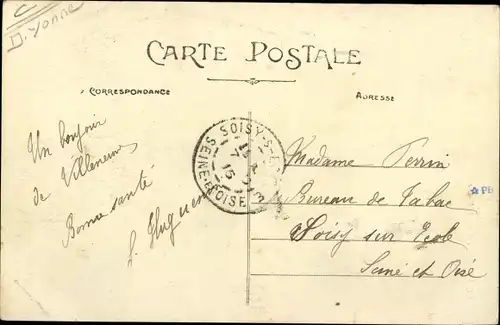 D. Yonne
CARTE POSTALE
CORRESPONDANCE
ADRESSE
Un bonjour
de Villeneuve
Bonne santé
SOISY-S-
SEINE-ET-OISE
15
Madame Perrin
Bureau de Tabac
Soisy sur Ecole
Seine et Oise